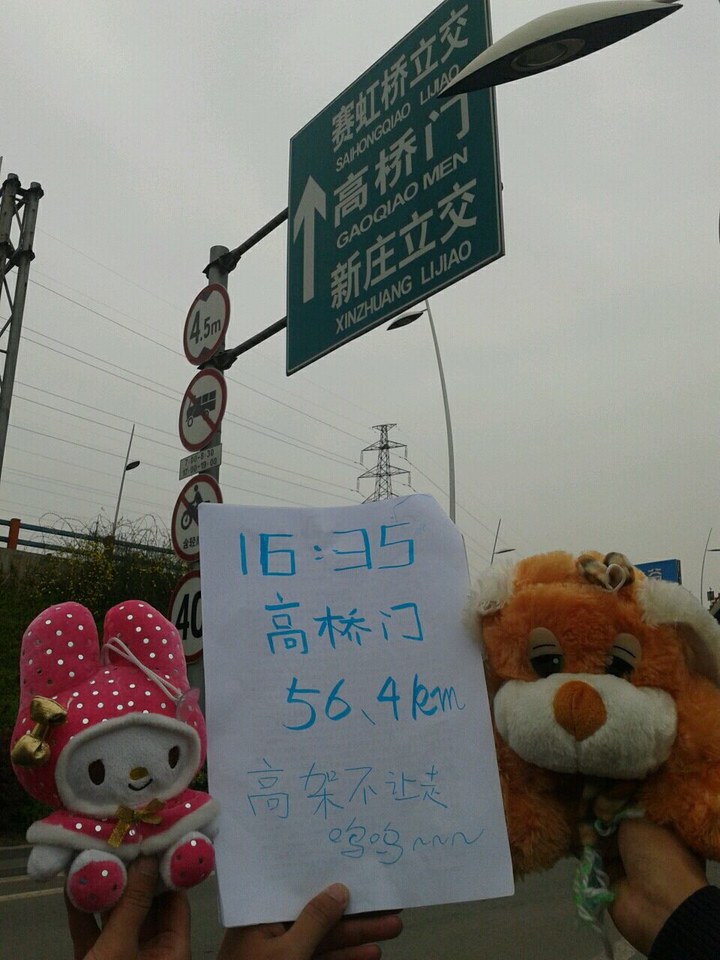 赛虹桥立交
SAIHONGQIAO LIJIAO
高桥门
GAOQIAO MEN
新庄立交
XINZHUANG LIJIAO
4.5m
40
16:35
高桥门
56.4km
高架不让走
呜呜~~~